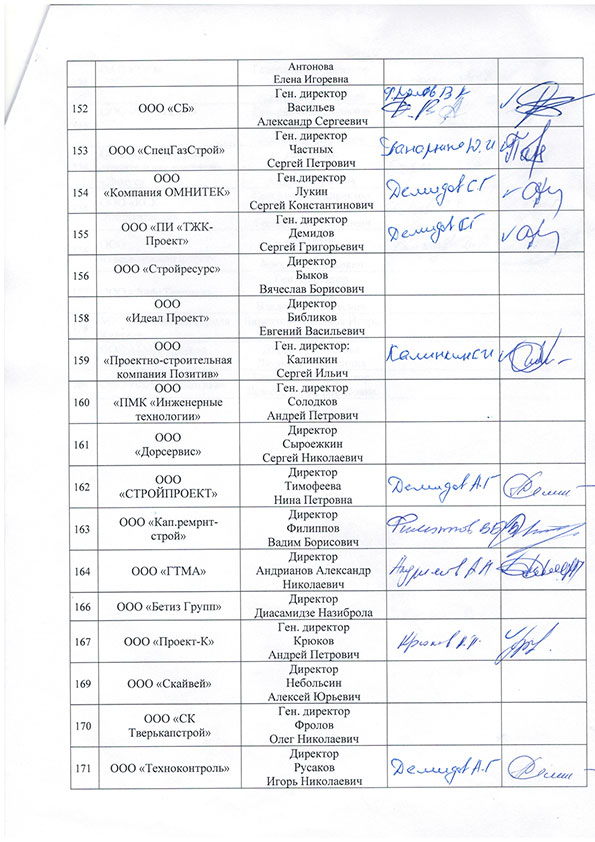 Антонова
Елена Игоревна
152
ООО «СБ»
Ген. директор
Васильев
Александр Сергеевич
153
ООО «СпецГазСтрой»
Ген. директор
Частных
Сергей Петрович
154
ООО
«Компания ОМНИТЕК»
Ген.директор
Лукин
Сергей Константинович
Демидов С.Г
155
ООО «ПИ «ТЖК-
Проект»
Ген. директор
Демидов
Сергей Григорьевич
Демидов С.Г
156
ООО «Стройресурс»
Директор
Быков
Вячеслав Борисович
158
ООО
«Идеал Проект»
Директор
Библиков
Евгений Васильевич
159
ООО
«Проектно-строительная
компания Позитив»
Ген. директор:
Калинкин
Сергей Ильич
Калинкин С И
160
ООО
«ПМК «Инженерные
технологии»
Ген. директор
Солодков
Андрей Петрович
161
ООО
«Дорсервис»
Директор
Сыроежкин
Сергей Николаевич
162
ООО
«СТРОЙПРОЕКТ»
Директор
Тимофеева
Нина Петровна
Демидов А.Г
163
ООО «Кап.ремрнт-
строй»
Директор
Филиппов
Вадим Борисович
Филиппов В Б
164
ООО «ГТМА»
Директор
Андрианов Александр
Николаевич
166
ООО «Бетиз Групп»
Директор
Диасамидзе Назиброла
167
ООО «Проект-К»
Ген. директор
Крюков
Андрей Петрович
Крюков А.П.
169
ООО «Скайвей»
Директор
Небольсин
Алексей Юрьевич
170
ООО «СК
Тверькапстрой»
Ген. директор
Фролов
Олег Николаевич
171
ООО «Техноконтроль»
Директор
Русаков
Игорь Николаевич
Демидов А.Г